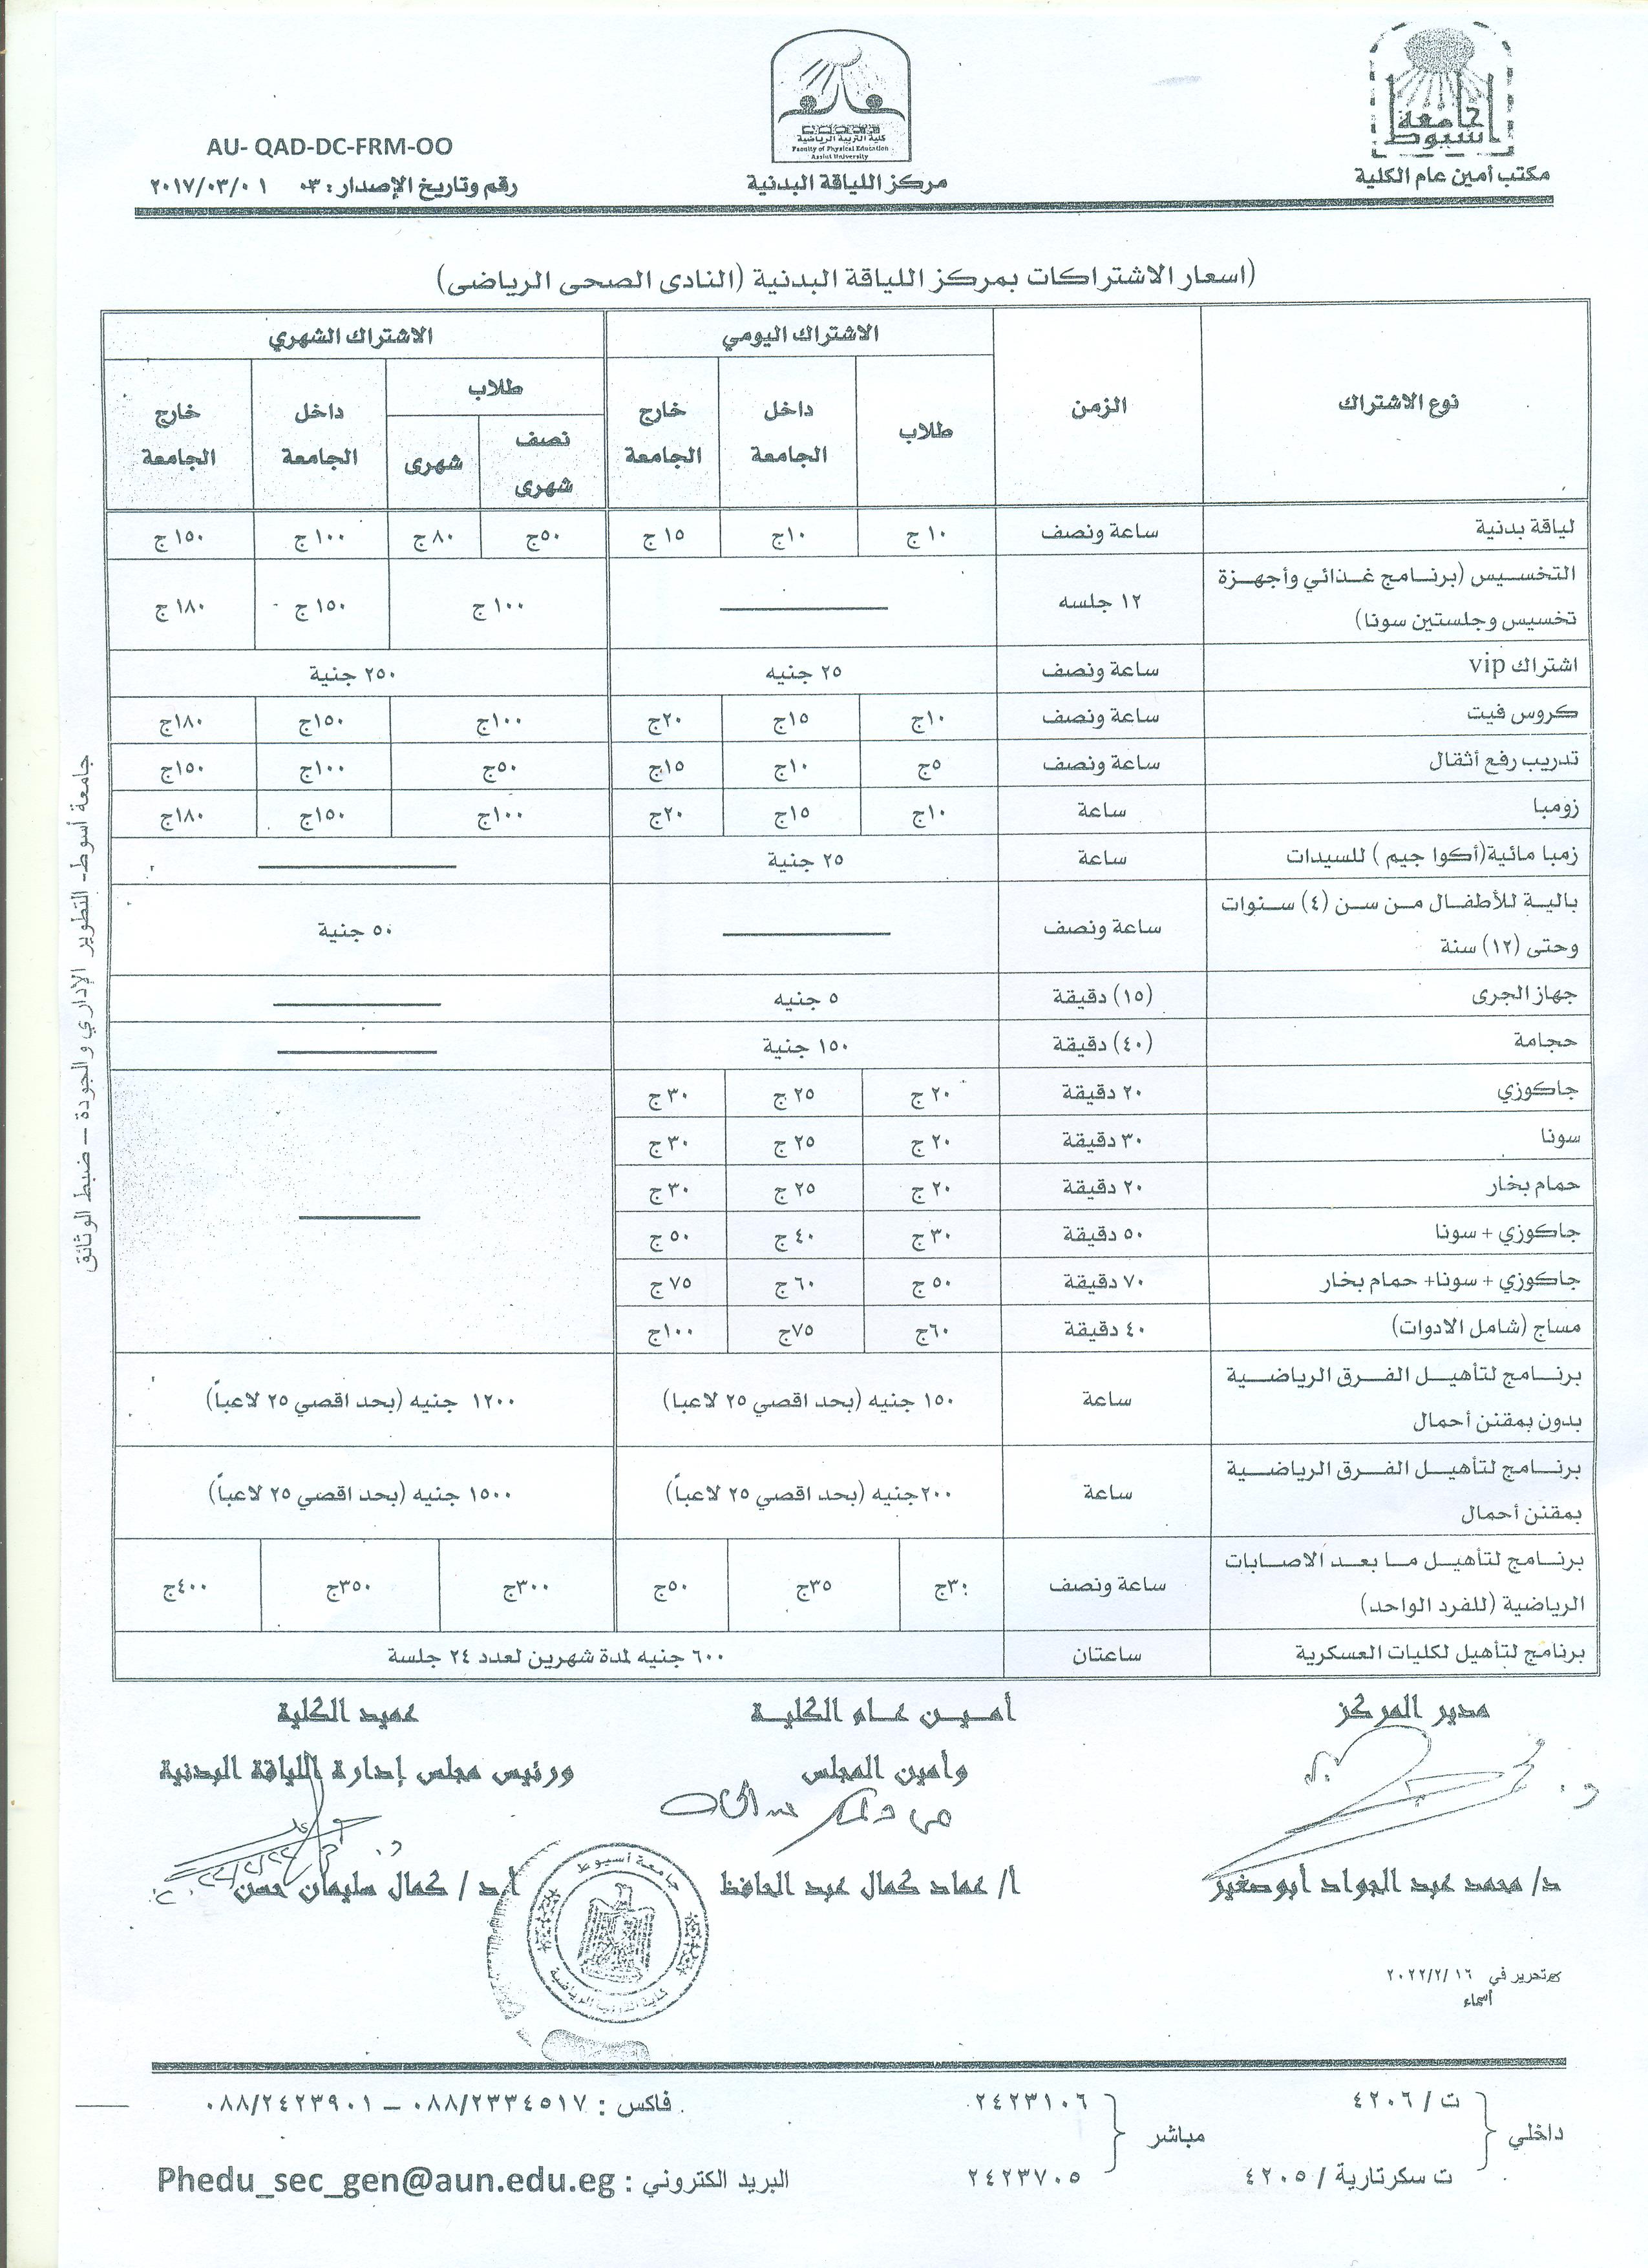 جامعة
أسيوط
مكتب أمين عام الكلية
كلية التربية الرياضية
Faculty of Physical Education
Assiut University
مركز اللياقة البدنية
AU- QAD-DC-FRM-OO
رقم وتاريخ الإصدار: ٠٣ ٢٠١٧/٠٣/٠١
(اسعار الاشتراكات بمركز اللياقة البدنية (النادى الصحى الرياضى)
نوع الاشتراك الزمن الاشتراك اليومي الاشتراك الشهري
طلاب داخل الجامعة خارج الجامعة طلاب داخل الجامعة خارج الجامعة
نصف شهرى شهرى
لياقة بدنية ساعة ونصف ١٠ ج ١٠ج ١٥ ج ٥٠ج ٨٠ ج ١٠٠ ج ١٥٠ ج
التخسيس (برنامج غذائي وأجهزة
تخسيس وجلستين سونا) ١٢ جلسه ١٠٠ ج ١٥٠ ج ١٨٠ ج
اشتراك vip ساعة ونصف ٢٥ جنيه ٢٥٠ جنية
كروس فيت ساعة ونصف ١٠ج ١٥ج ٢٠ج ١٠٠ج ١٥٠ج ١٨٠ج
تدريب رفع أثقال ساعة ونصف ٥ج ١٠ج ١٥ج ٥٠ج ١٠٠ج ١٥٠ج
زومبا ساعة ١٠ج ١٥ج ٢٠ج ١٠٠ج ١٥٠ج ١٨٠ج
زمبا مائية(أكوا جيم ) للسيدات ساعة ٢٥ جنية
بالية للأطفال من سن (٤) سنوات
وحتى (١٢) سنة ساعة ونصف ٥٠ جنية
جهاز الجرى (١٥) دقيقة ٥ جنيه
حجامة (٤٠) دقيقة ١٥٠ جنية
جاكوزي ٢٠ دقيقة ٢٠ ج ٢٥ ج ٣٠ ج
سونا ٣٠ دقيقة ٢٠ ج ٢٥ ج ٣٠ ج
حمام بخار ٢٠ دقيقة ٢٠ ج ٢٥ ج ٣٠ ج
جاكوزي + سونا ٥٠ دقيقة ٣٠ ج ٤٠ ج ٥٠ ج
جاكوزي + سونا+ حمام بخار ٧٠ دقيقة ٥٠ ج ٦٠ ج ٧٥ ج
مساج (شامل الادوات) ٤٠ دقيقة ٦٠ج ٧٥ج ١٠٠ج
برنامج لتأهيل الفرق الرياضية
بدون بمقنن أحمال ساعة ١٥٠ جنيه (بحد اقصي ٢٥ لاعبا) ١٢٠٠ جنيه (بحد اقصي ٢٥ لاعباً)
برنامج لتأهيل الفرق الرياضية
بمقنن أحمال ساعة ٢٠٠جنيه (بحد اقصي ٢٥ لاعباً) ١٥٠٠ جنيه (بحد اقصي ٢٥ لاعباً)
برنامج لتأهيل ما بعد الاصابات
الرياضية (للفرد الواحد) ساعة ونصف ٣٠ج ٣٥ج ٥٠ج ٣٠٠ج ٣٥٠ج ٤٠٠ج
برنامج لتأهيل لكليات العسكرية ساعتان ٦٠٠ جنيه لمدة شهرين لعدد ٢٤ جلسة
جامعة أسوط- التطوير الإداري والجودة – ضبط الوثائق
مدير المركز
د/ محمد عبد الجواد أبوصغير
أمين عام الكلية
وأمين المجلس
أ/ عماد كمال عبد الحافظ
عميد الكلية
ورئيس مجلس إدارة اللياقة البدنية
أ.د/ كمال سليمان حسن
جامعة أسيوط
كلية التربية الرياضية
تحرير في ٢٠٢٢/٢/١٦
أسماء
داخلي ت / ٤٢٠٦
ت سكرتارية / ٤٢٠٥
مباشر ٢٤٢٣١٠٦
٢٤٢٣٧٠٥
فاكس : ٠٨٨/٢٣٣٤٥١٧ – ٠٨٨/٢٤٢٣٩٠١
البريد الكتروني : Phedu_sec_gen@aun.edu.eg